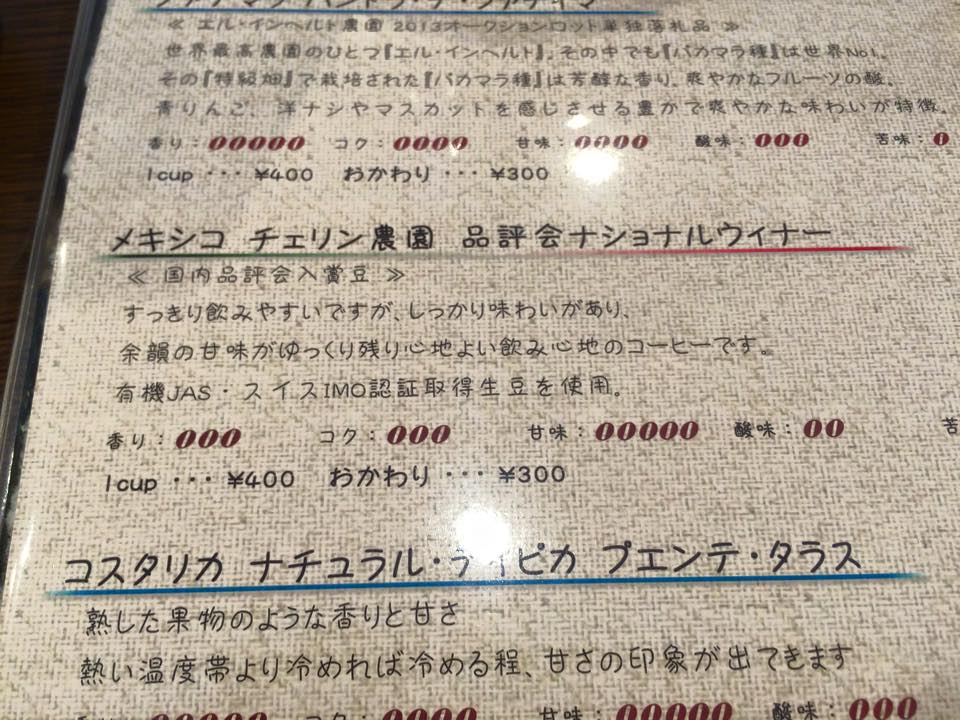 ≪ エル・インヘルト農園 2013オークションロット単独落札品 ≫
世界最高農園のひとつ『エル・インヘルト』。その中でも『パカマラ種』は世界No1。
その『特級畑』で栽培された『パカマラ種』は芳醇な香り、爽やかなフルーツの酸。
青りんご、洋ナシやマスカットを感じさせる豊かで爽やかな味わいが特徴。
香り： コク： 甘味： 酸味： 苦味：
1cup ・・・ ¥400 おかわり ・・・ ¥300
メキシコ チェリン農園 品評会ナショナルウィナー
≪ 国内品評会入賞豆 ≫
すっきり飲みやすいですが、しっかり味わいがあり、
余韻の甘味がゆっくり残り心地よい飲み心地のコーヒーです。
有機JAS・スイスIMO認証取得生豆を使用。
香り： コク： 甘味： 酸味： 苦
1cup ・・・ ¥400 おかわり ・・・ ¥300
コスタリカ ナチュラル・ティピカ プエンテ・タラス
熟した果物のような香りと甘さ
熱い温度帯より冷めれば冷める程、甘さの印象が出てきます
コク： 甘味： 酸味：